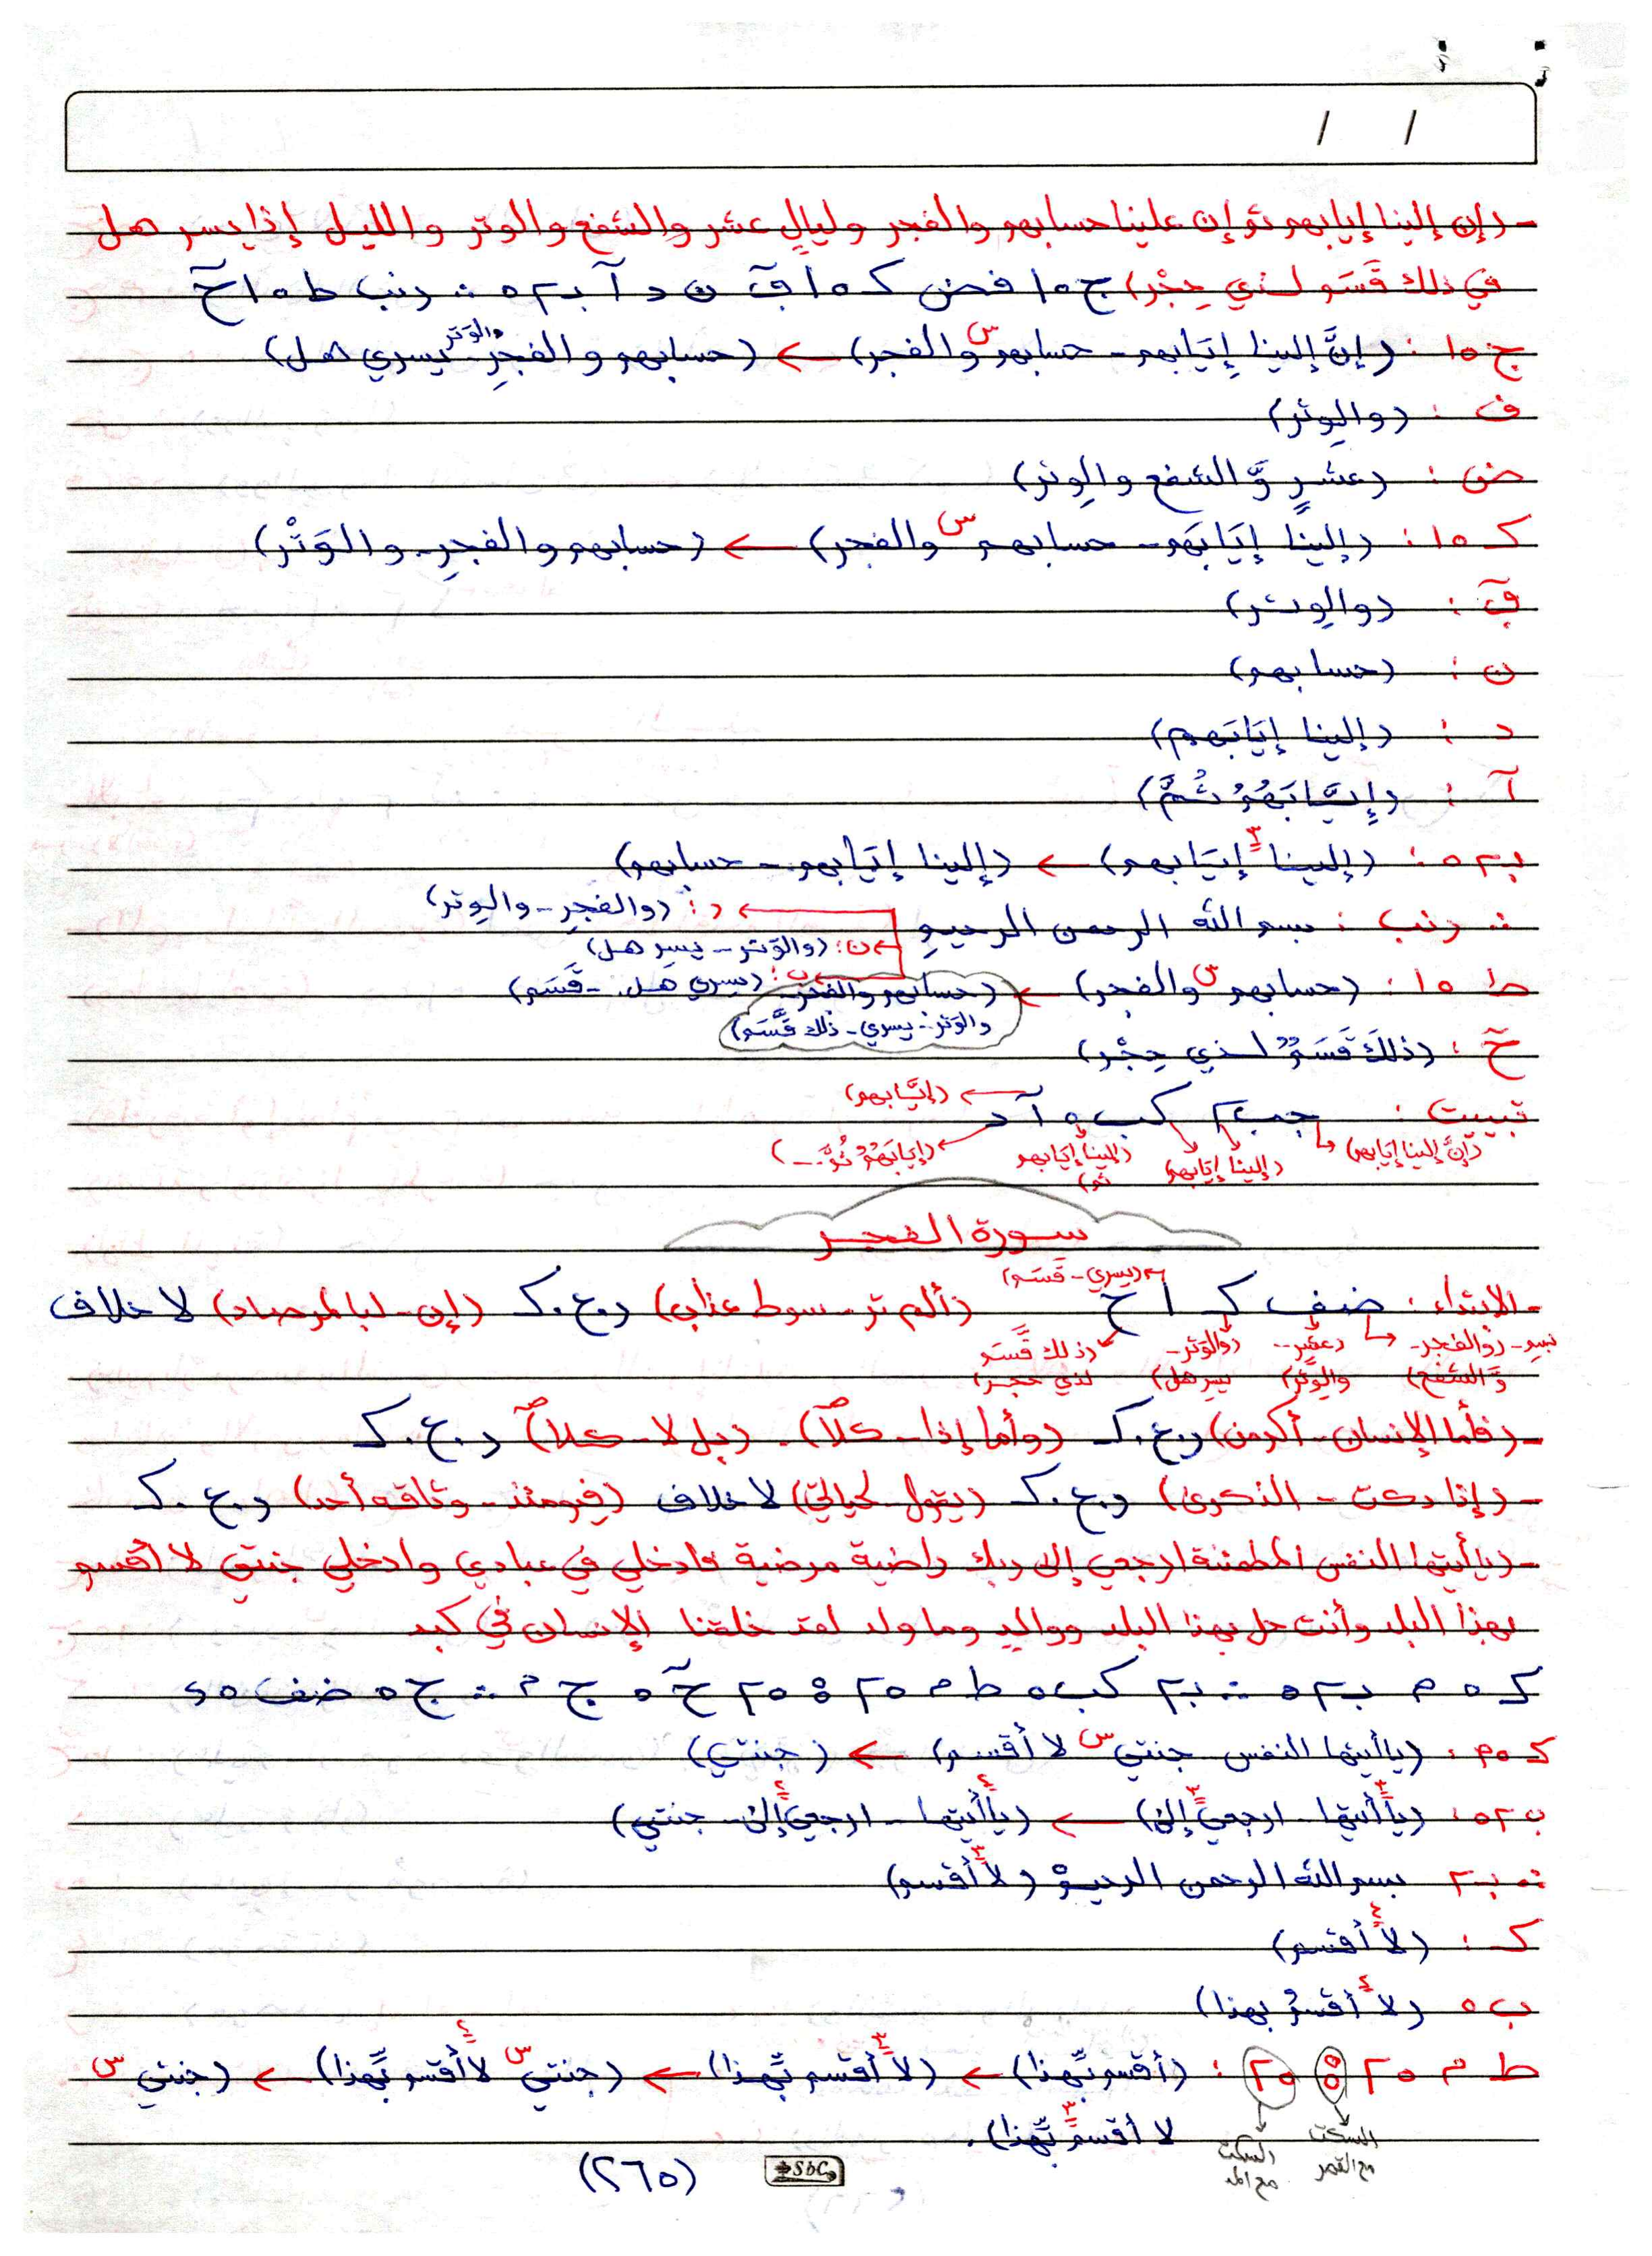 / /
- (إن إلينا إيابهم ثم إن علينا حسابهم والفجر وليالٍ عشر والشفع والوتر والليل إذا يسر هل
في ذلك قَسَم لذي حِجْر) ج ٥ ا فض ك ٥ ا قٓ ن د آ ب٢ ٥ ∴ دنب ط ٥ ا حٓ
ج ٥ ا : (إنَّ إلينا إيَابهم - حسابهم س والفجر) ← (حسابهم والفجرِ - والوَتر - يسري هل)
ف : (والوِتر)
ض : (عشرٍ وَّالشفع والوِتر)
ك ٥ ا : (إلينا إيَابَهم - حسابهم س والفجر) ← (حسابهم والفجرِ - والوَتْر)
قٓ : (والوِتر)
ن : (حسابهم)
د : (إلينا إيَابَهم)
آ : (إيَّابَهُمُ ثُمَّ)
ب٢ ٥ : (إلينا ٣ إيَابهم) ← (إلينا إيَابهم - حسابهم)
∴ دنب : بسم الله الرحمن الرحيم
← د : (والفجرِ - والوِتر)
← ن : (والوَتر - يسرِ هل)
← ب : (يسري هل - قَسَم)
ط ٥ ا : (حسابهم س والفجر) ← (حسابهم والفجر - والوَتر - يسري - ذلك قَّسَم)
حٓ : (ذلكَ قَسَمٌ لذي حِجْر)
تبييت : جب٢ كب ٥ آ د
← (إيَّابهم)
(إنَّ إلينا إيَابهم) (إلينا إيَابهم) (إلينا إيابهم ثم) (إيابَهُمُ ثُمَّ ...)
سورة الفجر
(يسري - قَسَم)
- الابتداء : ضف ك ا ح (ألم تر - سوط عذاب) د.ع.ك (إن - لبالمرصاد) لا خلاف
بسم - (والفجر - وَّالشفع) (عشر - والوِتر) (والوَتر - يسر هل) (ذلك قَّسَم لذي حجر)
- (فأما الإنسان - أكرمن) د.ع.ك (وأما إذا - كلاّ) - (بل لا - كلاّ) د.ع.ك
- (إذا دكت - الذكرى) د.ع.ك (يقول لحياتي) لا خلاف (فيومئذ - وثاقه أحد) د.ع.ك
- (يا أيتها النفس المطمئنة ارجعي إلى ربك راضية مرضية فادخلي في عبادي وادخلي جنتي لا أقسم
بهذا البلد وأنت حل بهذا البلد ووالد وما ولد لقد خلقنا الإنسان في كبد
ك ٥ م ب٢ ٥ ∴ ب٢ كب ٥ ط م ٥ ٢ ٥ ٢٥ حٓ ٥ ج م ∴ ج ٥ ضف ٥ د
ك ٥ م : (يا أيتها النفس جنتي س لا أقسم) ← (جنتي)
ب٢ ٥ : (يا ٣ أيتها - ارجعي ٣ إلى) ← (يا ٤ أيتها - ارجعي ٤ إلى - جنتي)
∴ ب٢ بسم الله الرحمن الرحيم (لا ٣ أقسم)
ك : (لا ٤ أقسم)
ب ٥ (لا ٤ أقسمُ بهذا)
ط م ٥ ٢ ٥ ٢٥ : (أقسم بِّهذا) ← (لا ٣ أقسم بِّهذا) ← (جنتي س لا ٤ أقسم بِّهذا) ← (جنتي س
لا ٣ أقسم بِّهذا).
السكت مع القصر
السكت مع المد
(٢٦٥)
SbC